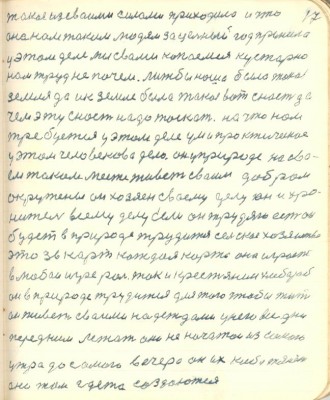 такое из своими силами приходило и это
она нам таким людям за ценный год пришла
у этом деле мы своми копаемся кустарно
нам трудно почем. лиш бы наша было такая
земля да и к земле была такая вот снасть да
чем эту снасть надо толкат. на что нам
требуется у этом деле ум и практическое
у этом человекова дело. он у природе на сво-
ем таком месте живеть своим добром
окружения он хозяен своему делу он и хра-
нител всему делу если он трудяга ест он
будеть в природе трудится сельское хозяйство
это за карт каждая карта она играить
в любои игре рол. так и крестянин хлебороб
он в природе трудится для того чтобы жит
он живеть своими надеждами у него все дни
передним лежат оно не начатои из самого
утра до самого вечера он их небо тянить
они там где то создаются